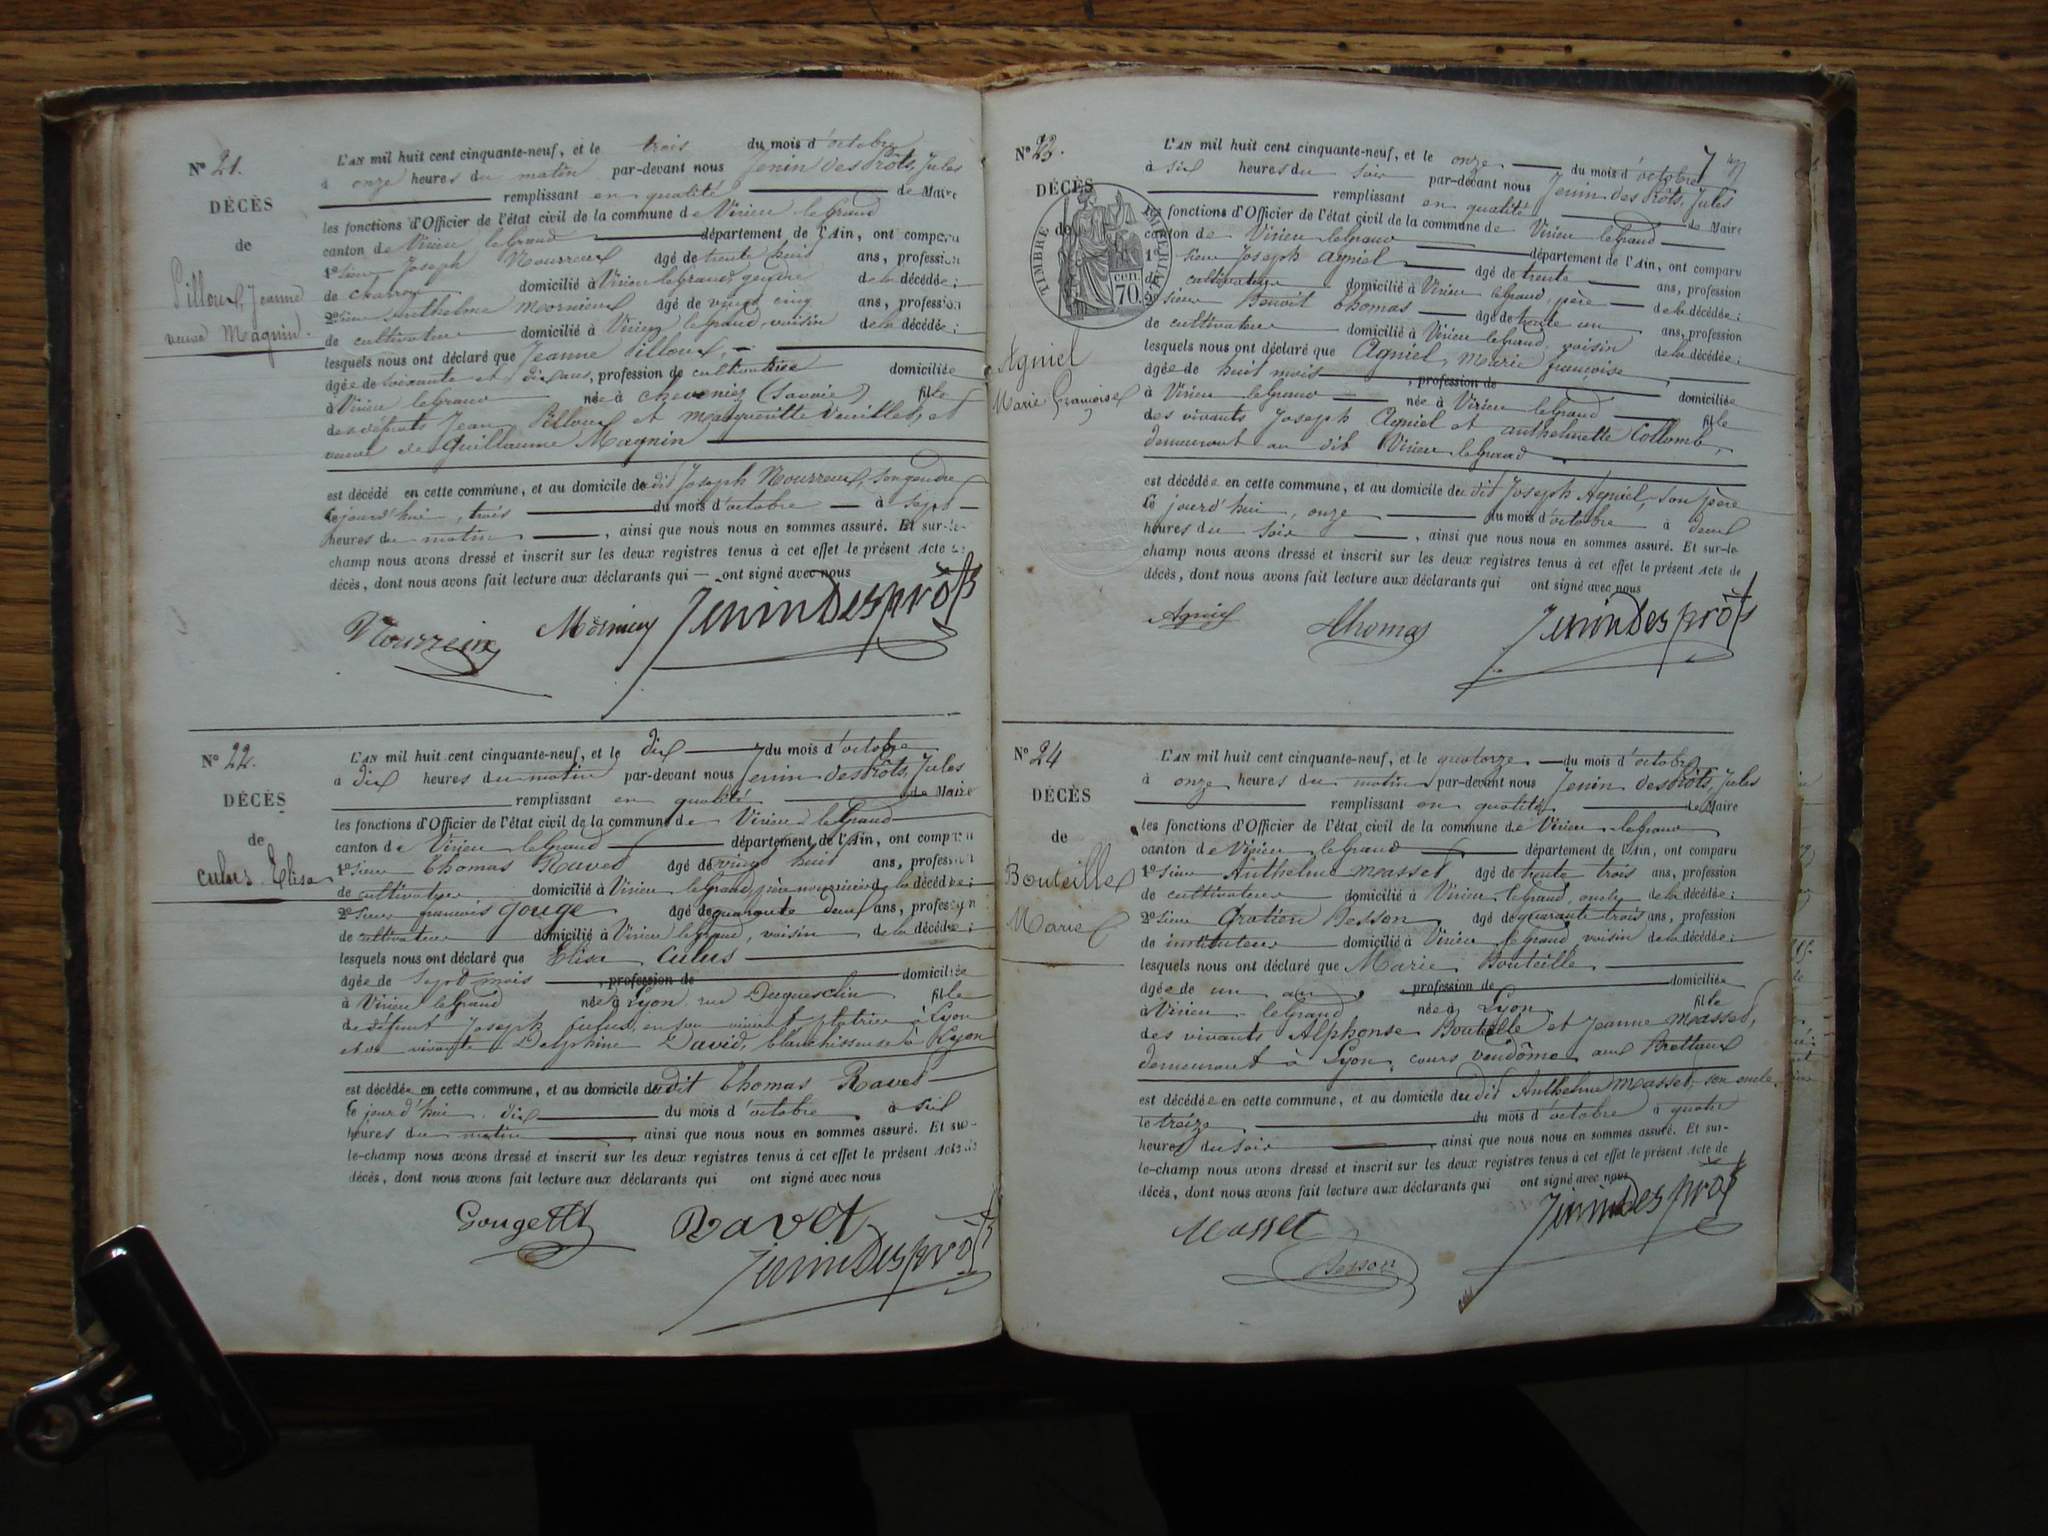 N° 21.
DÉCÈS
de
Pilloux, Jeanne
veuve Magnin.
L'AN mil huit cent cinquante-neuf, et le trois du mois d'octobre
à onze heures du matin par-devant nous Jenin desprôts, Jules
remplissant en qualité de Maire
les fonctions d'Officier de l'état civil de la commune de Virieu le grand
canton de Virieu le grand département de l'Ain, ont comparu
1° sieur Joseph Nourreux agé de trente huit ans, profession
de charron domicilié à Virieu le grand, gendre de la décédée;
2° sieur Anthelme Mornieux agé de vingt cinq ans, profession
de cultivateur domicilié à Virieu le grand, voisin de la décédée;
lesquels nous ont déclaré que Jeanne Pilloux,
âgée de soixante et dix ans, profession de cultivatrice domiciliée
à Virieu le grand née à (Savoie) fille
des défunts Jean Pilloux et Marguerite et
veuve de Guillaume Magnin
est décédé en cette commune, et au domicile dudit Joseph Nourreux, son gendre
cejourd'hui, trois du mois d'octobre à sept
heures du matin, ainsi que nous nous en sommes assuré. Et sur-le-
champ nous avons dressé et inscrit sur les deux registres tenus à cet effet le présent Acte de
décès, dont nous avons fait lecture aux déclarants qui — ont signé avec nous
Mornieux Jenindesprôts
N° 22.
DÉCÈS
de
Culus Elisa
L'AN mil huit cent cinquante-neuf, et le dix du mois d'octobre
à dix heures du matin par-devant nous Jenin desprôts, Jules
remplissant en qualité de Maire
les fonctions d'Officier de l'état civil de la commune de Virieu le grand
canton de Virieu le grand département de l'Ain, ont comparu
1° sieur Thomas Ravet agé de vingt huit ans, profession
de cultivateur domicilié à Virieu le grand, père nourricier de la décédée;
2° sieur francois Gouge agé de quarante deux ans, profession
de cultivateur domicilié à Virieu le grand, voisin de la décédée;
lesquels nous ont déclaré que Elisa Culus
âgée de sept mois, profession de domiciliée
à Virieu le grand née à Lyon rue Duguesclin fille
de défunt Joseph Culus, en son vivant platrier à Lyon
et de vivante Delphine David, blanchisseuse à Lyon
est décédée en cette commune, et au domicile dudit Thomas Ravet
ce jourd'hui, dix du mois d'octobre à six
heures du matin ainsi que nous nous en sommes assuré. Et sur-
le-champ nous avons dressé et inscrit sur les deux registres tenus à cet effet le présent Acte de
décès, dont nous avons fait lecture aux déclarants qui ont signé avec nous
Ravet
Jenindesprôts
7
N° 23.
DÉCÈS
de
TIMBRE IMPERIAL
cen.
70.
Agniel
Marie Françoise
L'AN mil huit cent cinquante-neuf, et le onze du mois d'octobre
à six heures du soir par-devant nous Jenin desprôts, Jules
remplissant en qualité de Maire
les fonctions d'Officier de l'état civil de la commune de Virieu le grand
canton de Virieu le grand département de l'Ain, ont comparu
1° sieur Joseph Agniel agé de trente ans, profession
de cultivateur domicilié à Virieu le grand, père de la décédée;
2° sieur Benoit Thomas agé de trente un ans, profession
de cultivateur domicilié à Virieu le grand, voisin de la décédée;
lesquels nous ont déclaré que Agniel, Marie françoise
âgée de huit mois, profession de domiciliée
à Virieu le grand née à Virieu le grand fille
des vivants Joseph Agniel et anthelmette Collomb,
demeurant au dit Virieu le grand
est décédée en cette commune, et au domicile du dit Joseph Agniel, son père
ce jourd'hui, onze du mois d'octobre à deux
heures du soir, ainsi que nous nous en sommes assuré. Et sur-le-
champ nous avons dressé et inscrit sur les deux registres tenus à cet effet le présent Acte de
décès, dont nous avons fait lecture aux déclarants qui ont signé avec nous
Agniel Thomas Jenindesprôts
N° 24
DÉCÈS
de
Bouteille
Marie
L'AN mil huit cent cinquante-neuf, et le quatorze du mois d'octobre
à onze heures du matin par-devant nous Jenin desprôts, Jules
remplissant en qualité de Maire
les fonctions d'Officier de l'état civil de la commune de Virieu le grand
canton de Virieu le grand département de l'Ain, ont comparu
1° sieur Anthelme Masset agé de trente trois ans, profession
de cultivateur domicilié à Virieu le grand, oncle de la décédée;
2° sieur Gratien Besson agé de quarante trois ans, profession
de instituteur domicilié à Virieu le grand, voisin de la décédée;
lesquels nous ont déclaré que Marie Bouteille
âgée de un an, profession de domiciliée
à Virieu le grand née à Lyon fille
des vivants Alphonse Bouteille et Jeanne Masset,
demeurant à Lyon, cours vendôme aux Brottaux
est décédée en cette commune, et au domicile du dit Anthelme Masset, son oncle
le treize du mois d'octobre à quatre
heures du soir ainsi que nous nous en sommes assuré. Et sur-
le-champ nous avons dressé et inscrit sur les deux registres tenus à cet effet le présent Acte de
décès, dont nous avons fait lecture aux déclarants qui ont signé avec nous
Masset Jenindesprôts
Besson